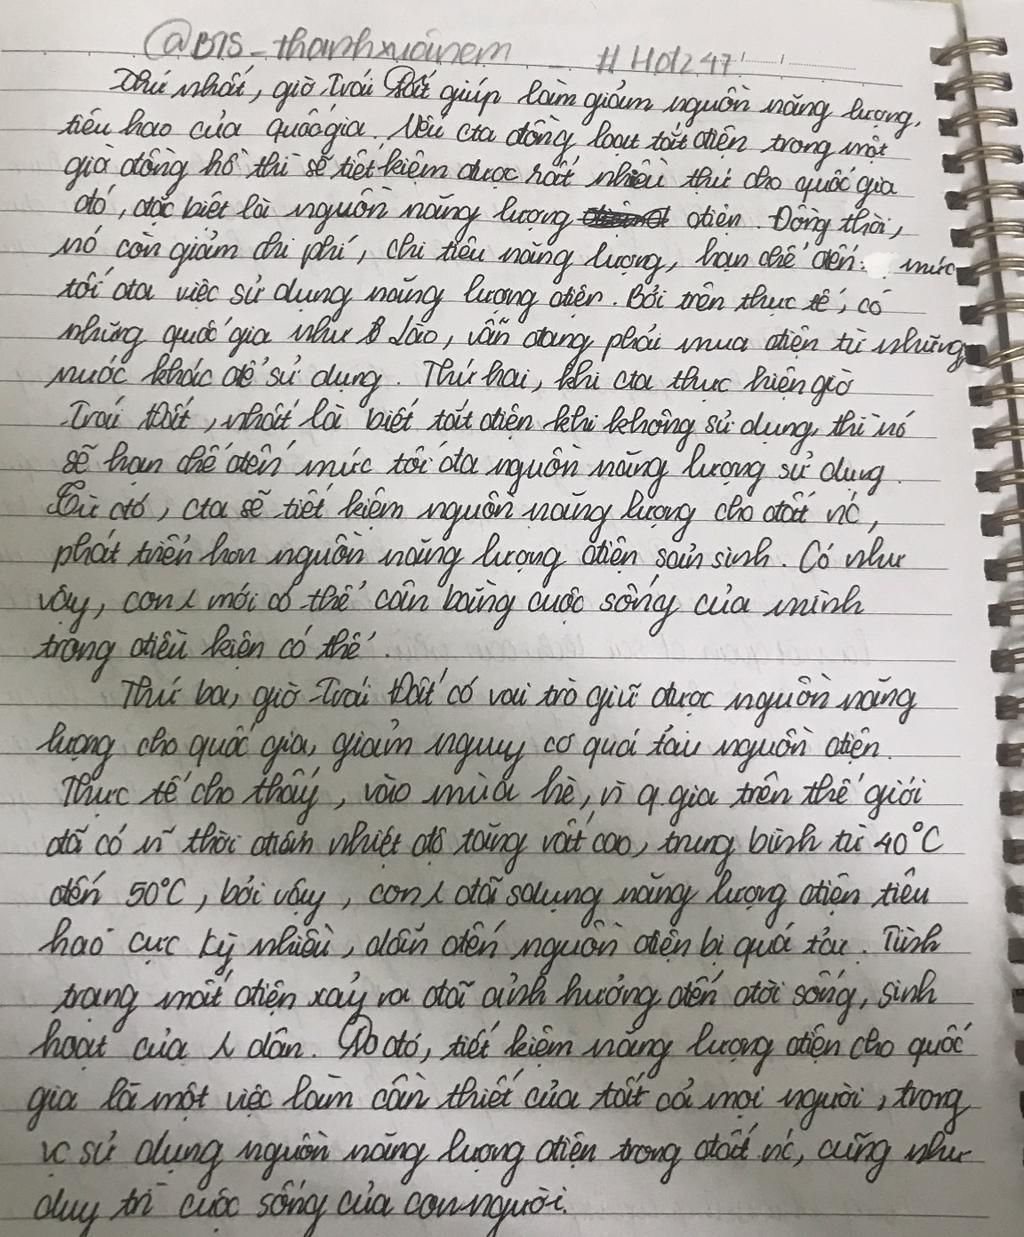 @BTS_thanhxuânem #Hoi247
Thứ nhất, giờ Trái Đất giúp làm giảm nguồn năng lượng,
tiêu hao của quốc gia. Nếu cta đồng loạt tắt điện trong một
giờ đồng hồ thì sẽ tiết kiệm được rất nhiều thứ cho quốc gia
đó, đặc biệt là nguồn năng lượng điện. Đồng thời,
nó còn giảm chi phí, chi tiêu năng lượng, hạn chế đến mức
tối đa việc sử dụng năng lượng điện. Bởi trên thực tế, có
những quốc gia như Lào, vẫn đang phải mua điện từ những
nước khác để sử dụng. Thứ hai, khi cta thực hiện giờ
Trái Đất, nhất là biết tắt điện khi không sử dụng, thì nó
sẽ hạn chế đến mức tối đa nguồn năng lượng sử dụng.
Từ đó, cta sẽ tiết kiệm nguồn năng lượng cho đất nc,
phát triển hơn nguồn năng lượng điện sản sinh. Có như
vậy, con ng mới có thể cân bằng cuộc sống của mình
trong điều kiện có thể.
Thứ ba, giờ Trái Đất có vai trò giữ được nguồn năng
lượng cho quốc gia, giảm nguy cơ quá tải nguồn điện.
Thực tế cho thấy, vào mùa hè, vì q gia trên thế giới
đã có n~ thời điểm nhiệt độ tăng rất cao, trung bình từ 40°C
đến 50°C, bởi vậy, con ng đã sdụng năng lượng điện tiêu
hao cực kỳ nhiều, dẫn đến nguồn điện bị quá tải. Tình
trạng mất điện xảy ra đã ảnh hưởng đến đời sống, sinh
hoạt của ng dân. Do đó, tiết kiệm năng lượng điện cho quốc
gia là một việc làm cần thiết của tất cả mọi người, trong
vc sử dụng nguồn năng lượng điện trong đất nc, cũng như
duy trì cuộc sống của con người.